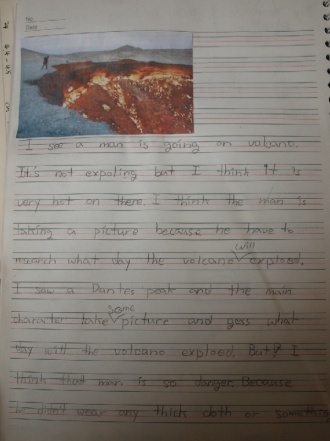 No.
Date
I see a man is going on volcano.
It's not expoling but I think it is
very hot on there. I think the man is
taking a picture because he have to
research what day the volcano will exploed.
I saw a Dantes peak and the main
character take some picture and gess what
day will the volcano exploed. But I
think that man is so danger. Because
he didn't wear any thick cloth or something